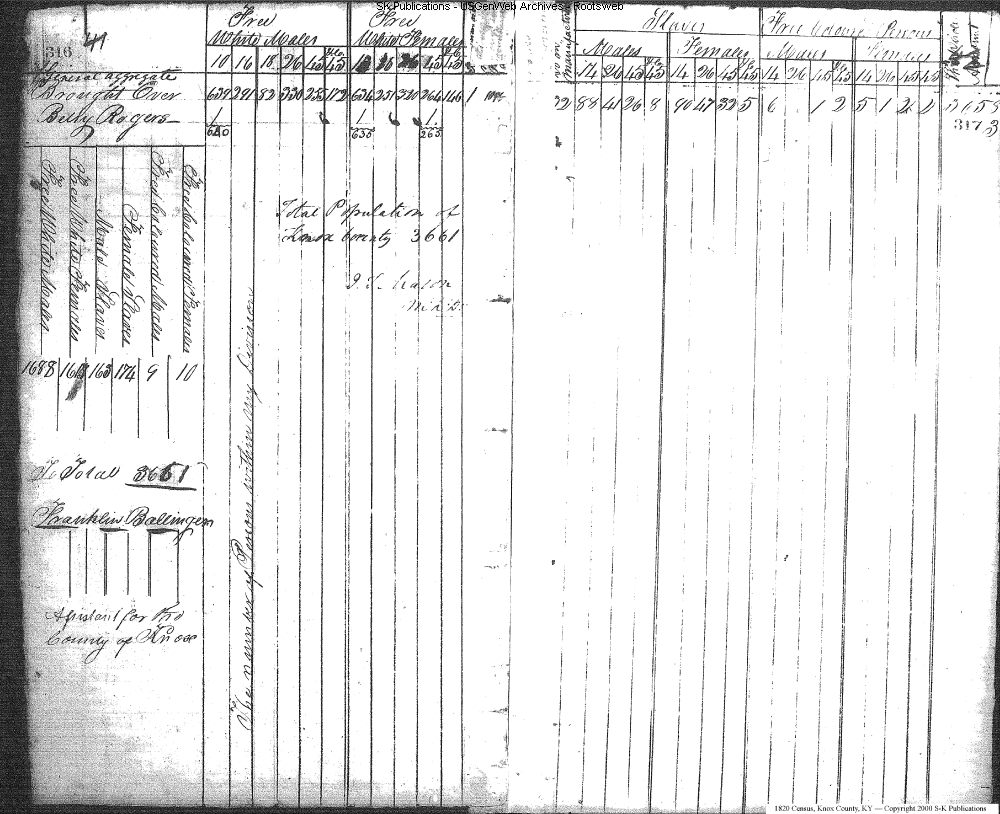 SK Publications - USGenWeb Archives - Rootsweb
316 41
Free White Males
Free White Females
10 16 18 26 45 45
10 16 26 45 45
Slaves
Free Coloured Persons
Males Females Males Females
14 26 45 45 14 26 45 45 14 26 45 45 14 26 45 45
General aggregate
Brought Over 639 291 82 230 172 634 251 320 264 146 1
88 41 26 8 90 47 32 5 6 1 2 5 1 2 2
Billy Rogers 1 1 1
640 635 265
317 3
Free White Males
Free White Females
Male Slaves
Female Slaves
Free Coloured Males
Free Coloured Females
Total Population of
Knox County 3661
1688 163 174 9 10
The number of Persons within my Division
Total 3661
Franklin Ballinger
Assistant for the
County of Knox
1820 Census, Knox County, KY — Copyright 2000 S-K Publications